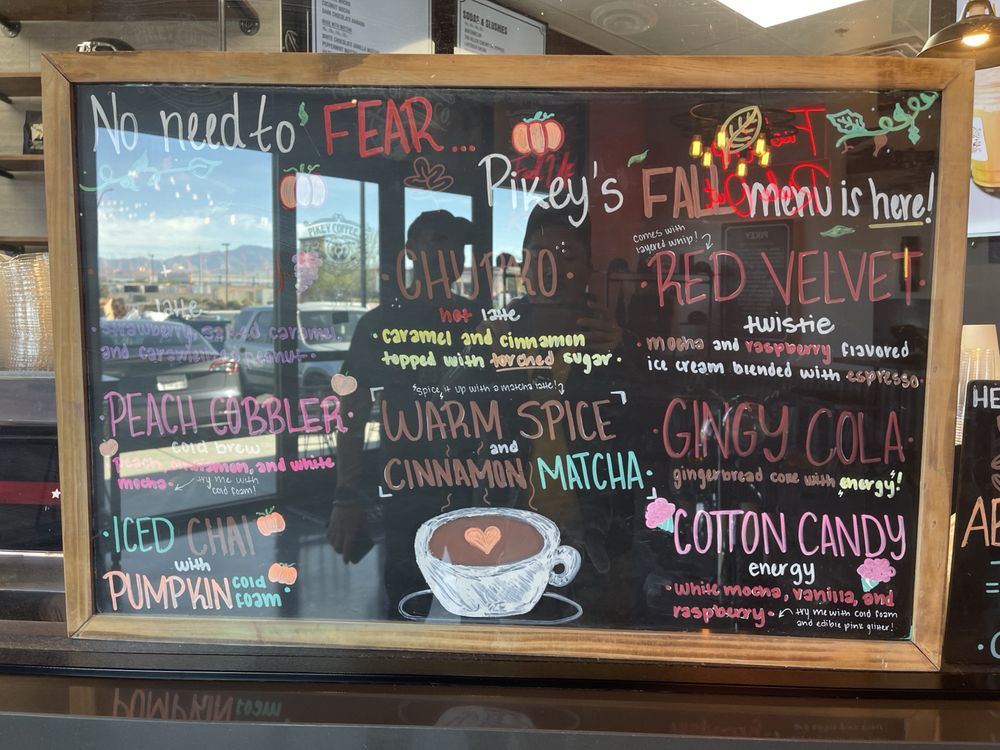 No need to FEAR...
Pikey's FALL menu is here!
latte
strawberry, salted caramel,
and caramelized peanut.
PEACH COBBLER
cold brew
peach, cinnamon, and white
mocha.
try me with
cold foam!
ICED CHAI
with
PUMPKIN cold
foam
CHURRO
hot latte
caramel and cinnamon
topped with torched sugar.
spice it up with a matcha latte!
WARM SPICE
and
CINNAMON MATCHA
comes with
layered whip!
RED VELVET
twistie
mocha and raspberry flavored
ice cream blended with espresso
GINGY COLA
gingerbread coke with energy!
COTTON CANDY
energy
white mocha, vanilla, and
raspberry
try me with cold foam
and edible pink glitter!
PIKEY COFFEE
SODAS & SLUSHIES
HE